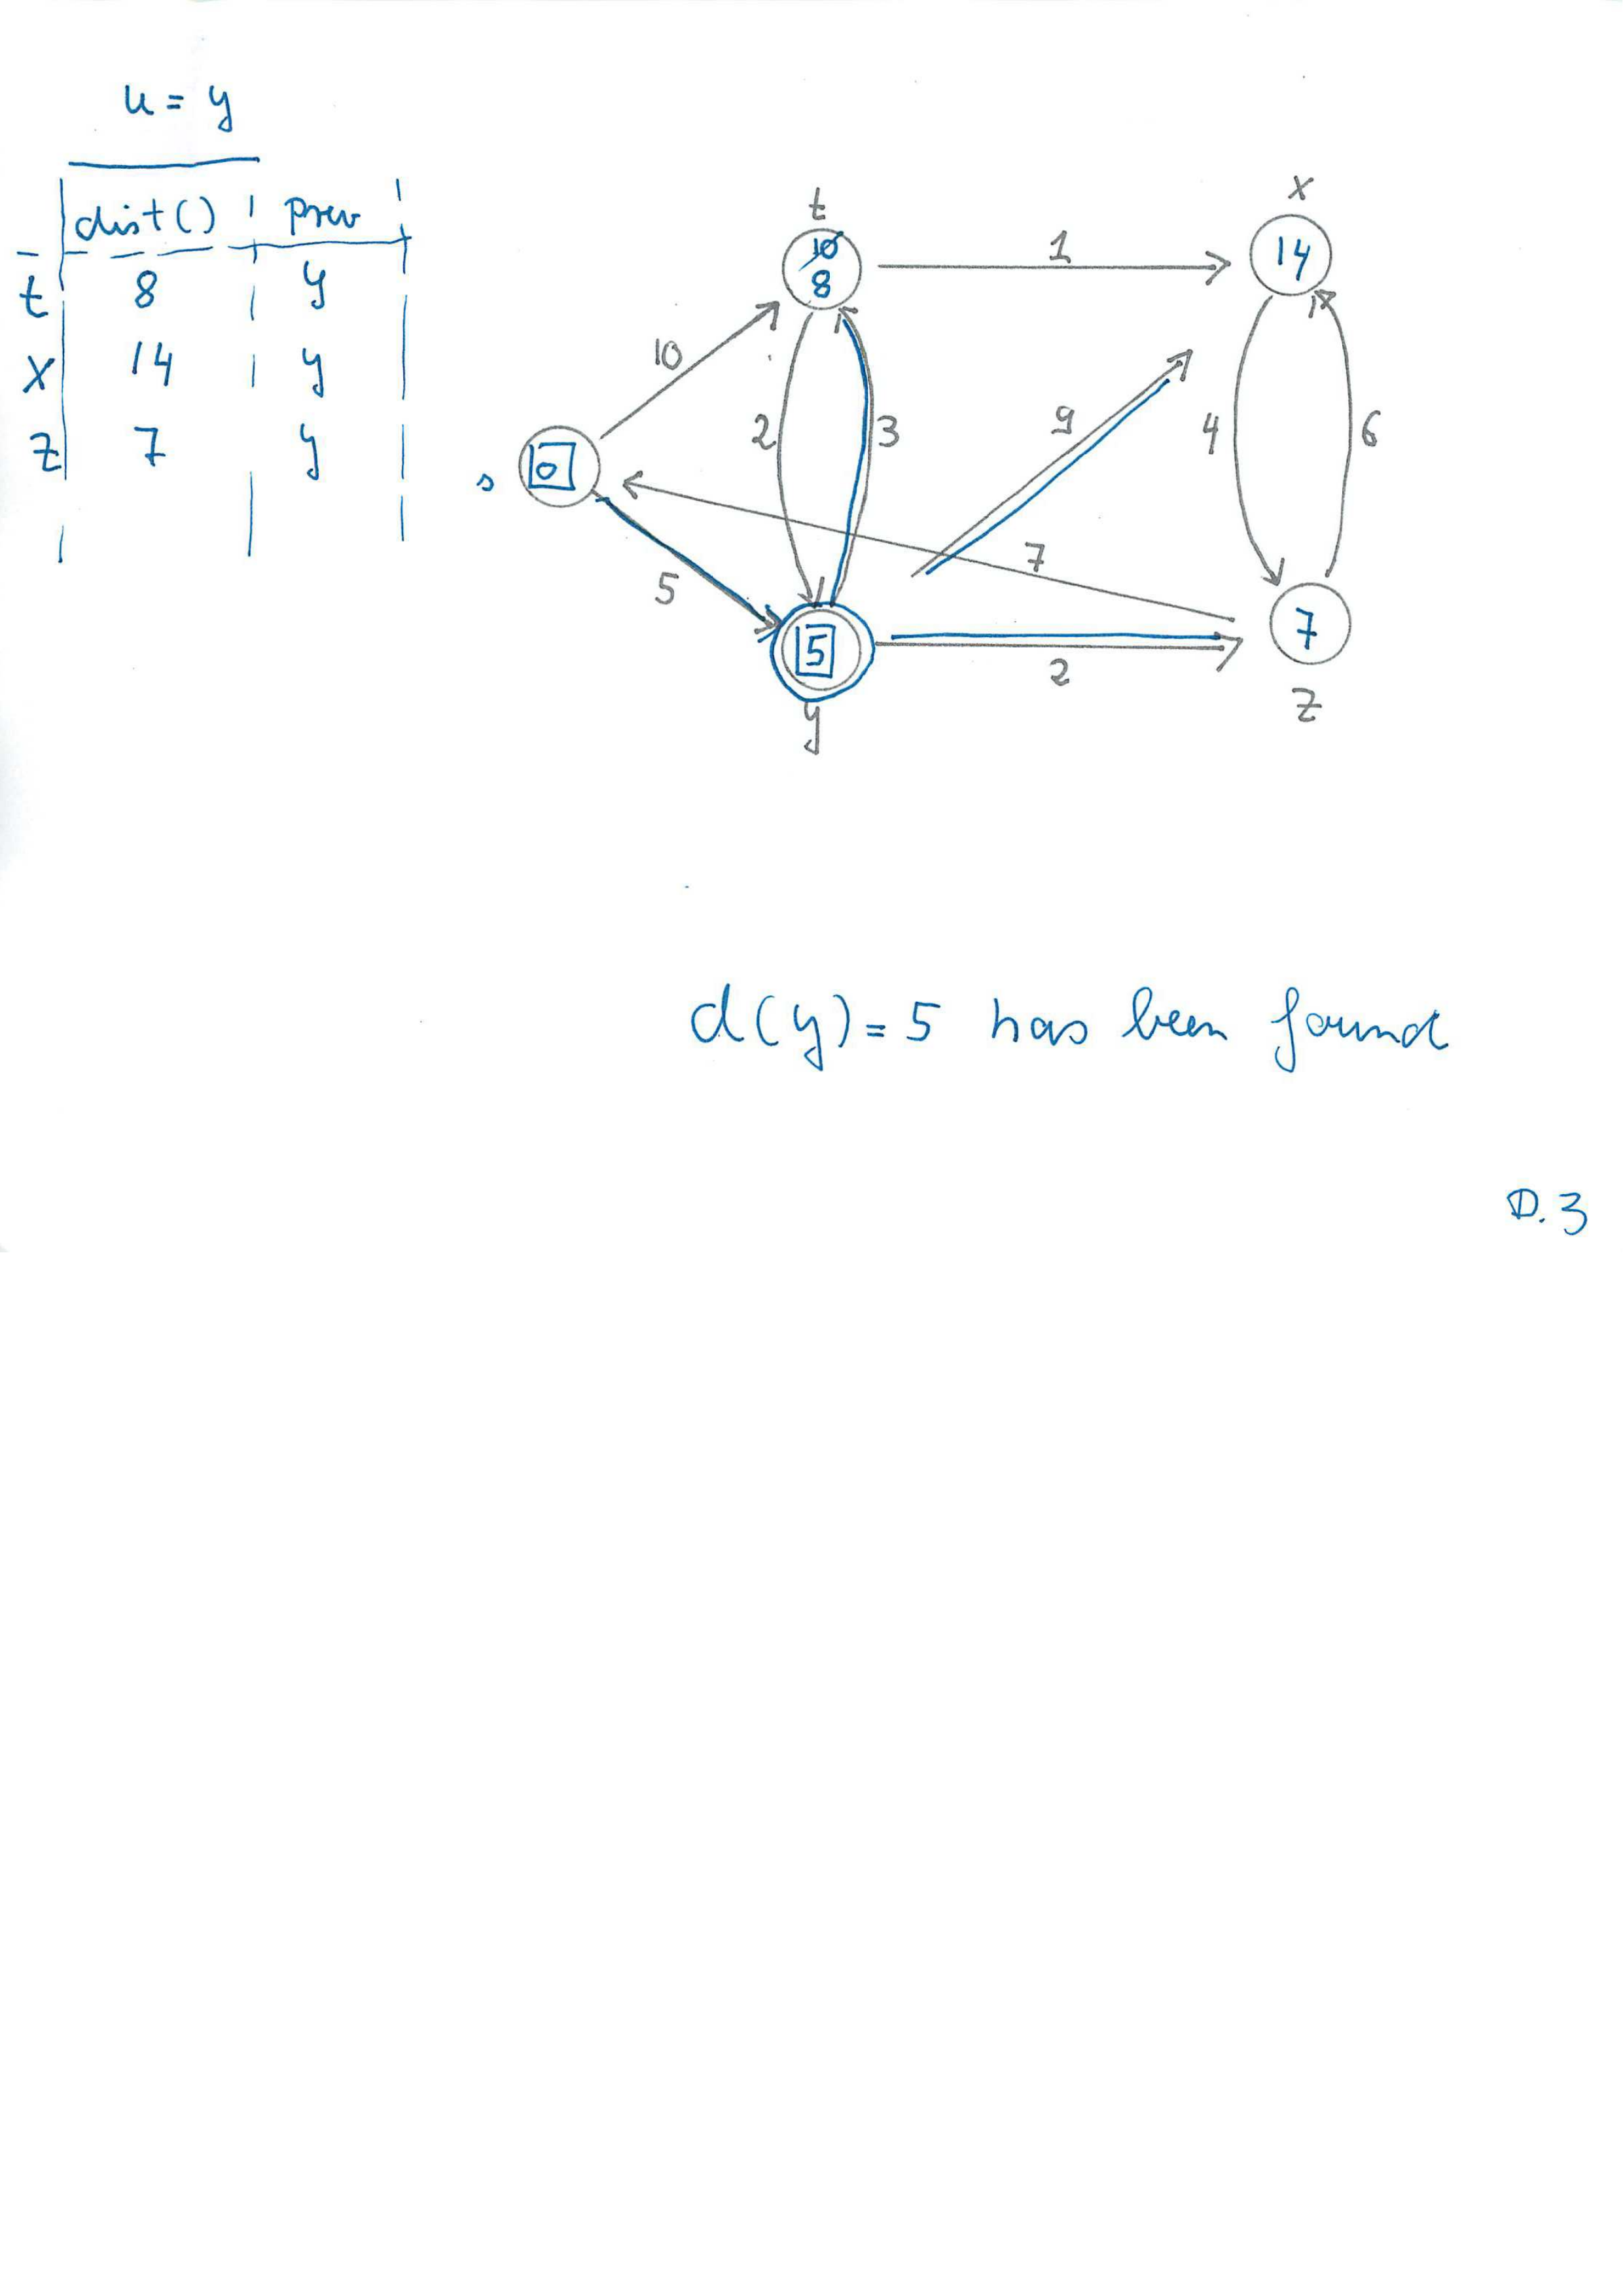 u = y
dist() prev
t 8 y
x 14 y
z 7 y
t
x
10
8
1
14
10
2
3
9
4
6
s
0
7
5
5
2
7
y
z
d(y) = 5 has been found
D.3